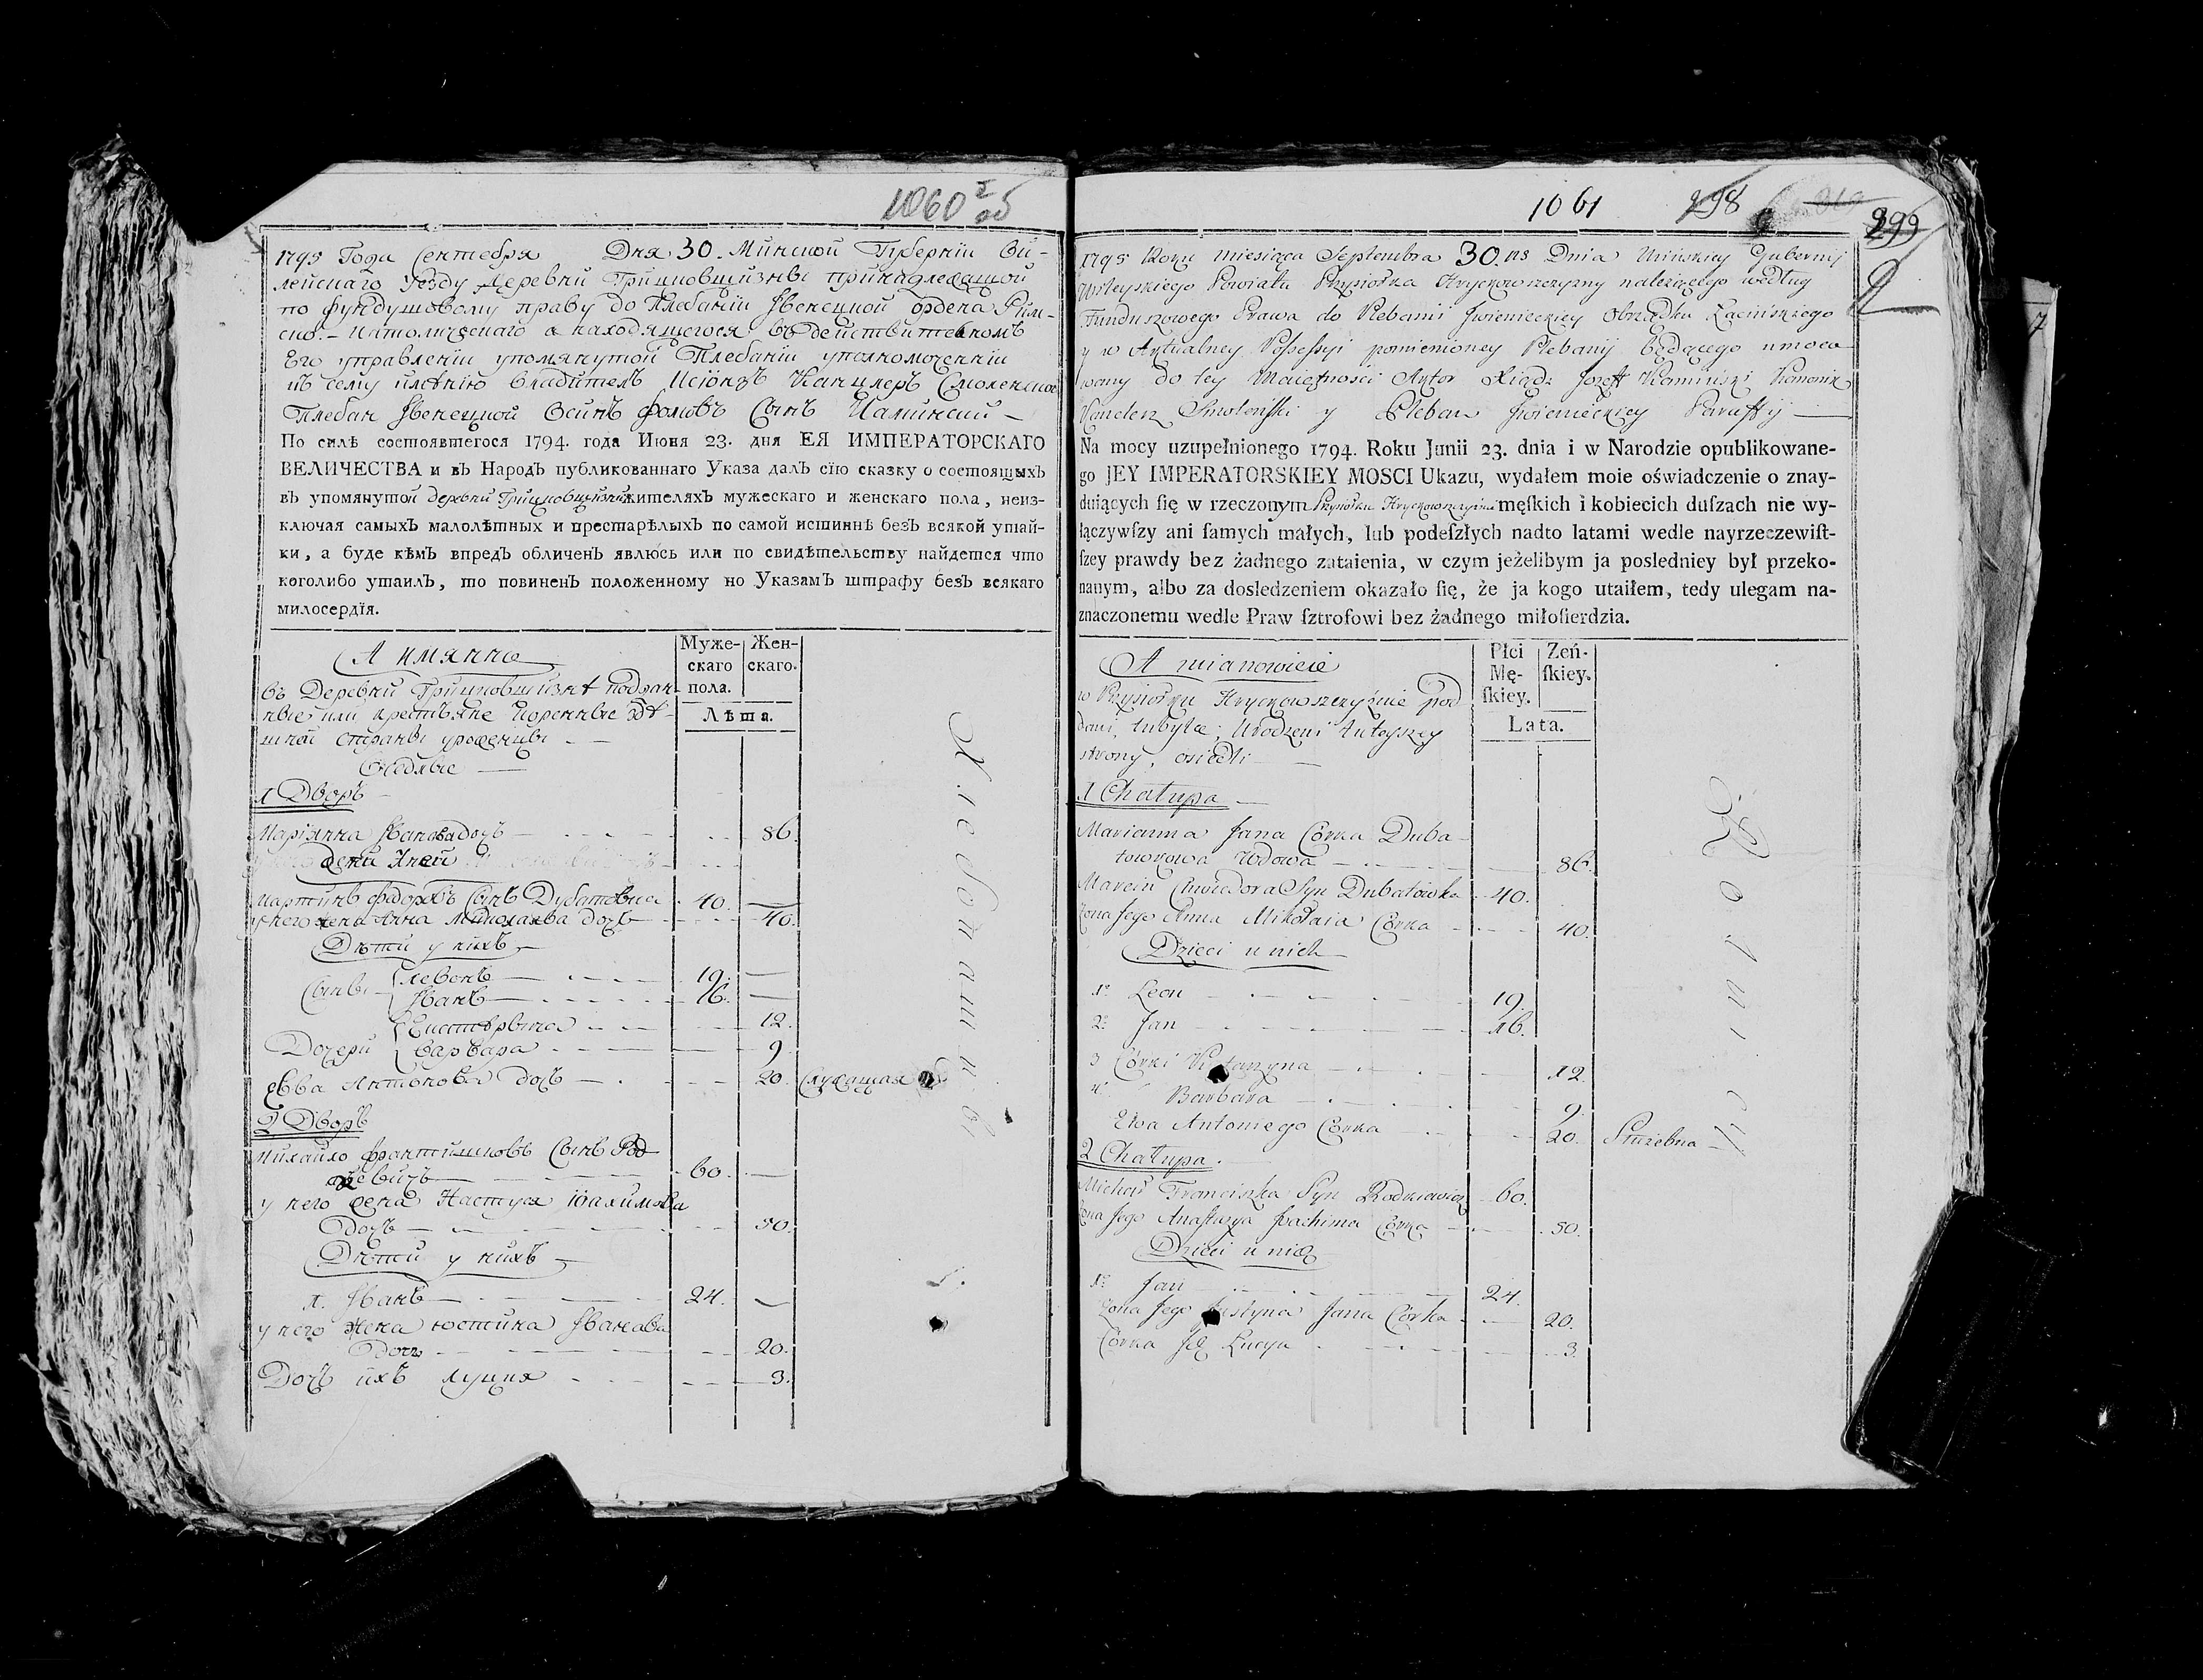 1060
1795 Года Сентебря Дня 30. Минской Губернїи Ви-
лейскаго Уезду Деревни Грицковщизны принадлежащой
по фундушовому праву до Плебанїи Ивенецкой ордена Рим-
ско-Католическаго а находящегося въ действителномъ
Его управленїи упомянутой Плебанїи уполномоченнїи
къ сему имѣнїю владитель Ксіондзъ Канцлеръ Смоленской
Плебан Ивенецкой Осипъ фомовъ Сынъ Каминский
По силѣ состоявшегося 1794. года Июня 23. дня ЕЯ ИМПЕРАТОРСКАГО
ВЕЛИЧЕСТВА и въ Народъ публикованнаго Указа далъ сїю сказку о состоящыхъ
въ упомянутой деревни Грицковщизни жителяхъ мужескаго и женскаго пола, неиз-
ключая самыхъ малолѣтныхъ и престарѣлыхъ по самой истиннѣ безъ всякой утай-
ки, а буде кѣмъ впредъ обличенъ явлюсь или по свидѣтельству найдется что
коголибо утаилъ, то повиненъ положенному по Указамъ штрафу безъ всякаго
милосердїя.
А имянно
Муже-скаго пола. Жен-скаго.
Лѣта.
въ Деревни Грицковщизнѣ поддан-
ные или крестьяне коренные здѣ-
шной стараны уроженцы
Оседлые
1 Дворъ
Марїянна Иванова дочь 86.
Мартинъ федоровъ Сынъ Дубатовка 40.
у него жена Анна Миколаева дочь 40.
Дѣти у нихъ
Сыны Левонъ 19.
Иванъ 16.
Дочери Екатерына 12.
Варвара 9.
Евва Антонова дочь 20. Служащая
2 Дворъ
Михайло францишковъ Сынъ Род-
кевичъ 60.
у него жена Настуся Іоахимова
Дочь 50.
Дѣти у нихъ
1. Иванъ 24.
у него жена юстина Иванова
дочь 20.
Дочь ихъ луция 3.
1061 298 299
1795 Roku miesiąca Septembra 30.ns Dnia Mińskiey Gubernij
Wileyskiego Powiatu Przysiołka Hryckowszczyzny należącego według
Funduszowego Prawa do Plebanii Iwienieckiey Obrządku Łacińskiego
y w Aktualney Possessyi pomienioney Plebanij będącego umoco
wany do tey Maiętnosci Aktor Xiądz Jozeff Kamiński Kanonik
Kanclerz Smoleński y Pleban Iwienieckiey Paraffij
Na mocy uzupełnionego 1794. Roku Junii 23. dnia i w Narodzie opublikowane-
go JEY IMPERATORSKIEY MOSCI Ukazu, wydałem moie oświadczenie o znay-
duiących ſię w rzeczonym Przysiołku Hryckowszczyznie męſkich i kobiecich duſzach nie wy-
łączywſzy ani ſamych małych, lub podeſzłych nadto latami wedle nayrzeczewiſt-
ſzey prawdy bez żadnego zataienia, w czym jeżelibym ja posledniey był przeko-
nanym, albo za dosledzeniem okazało ſię, że ja kogo utaiłem, tedy ulegam na-
znaczonemu wedle Praw ſztrofowi bez żadnego miłoſierdzia.
A mianowicie
Płci Mę-ſkiey. Zeń-ſkiey.
Lata.
w Przysiołku Hryckowszczyznie pod
dani, tubylce, Urodzeni tuteyszey
strony, osiedli
1 Chałupa
Marianna Jana Corka Duba
towkowa Wdowa 86.
Marcin Chwiedora Syn Dubatowka 40.
Zona Jego Anna Mikołaia Corka 40.
Dzieci u nich
1o Leon 19.
2o Jan 16.
3 Córki Katarzyna 12.
4 Barbara 9.
Ewa Antoniego Corka 20. Służebna
2 Chałupa.
Michał Franciszka Syn Rodkiewicz 60.
Zona Jego Anastazya Joachima Corka 50.
Dzieci u nich
1o Jan 24.
Zona Jego Justyna Jana Corka 20.
Corka Ich Lucya 3.